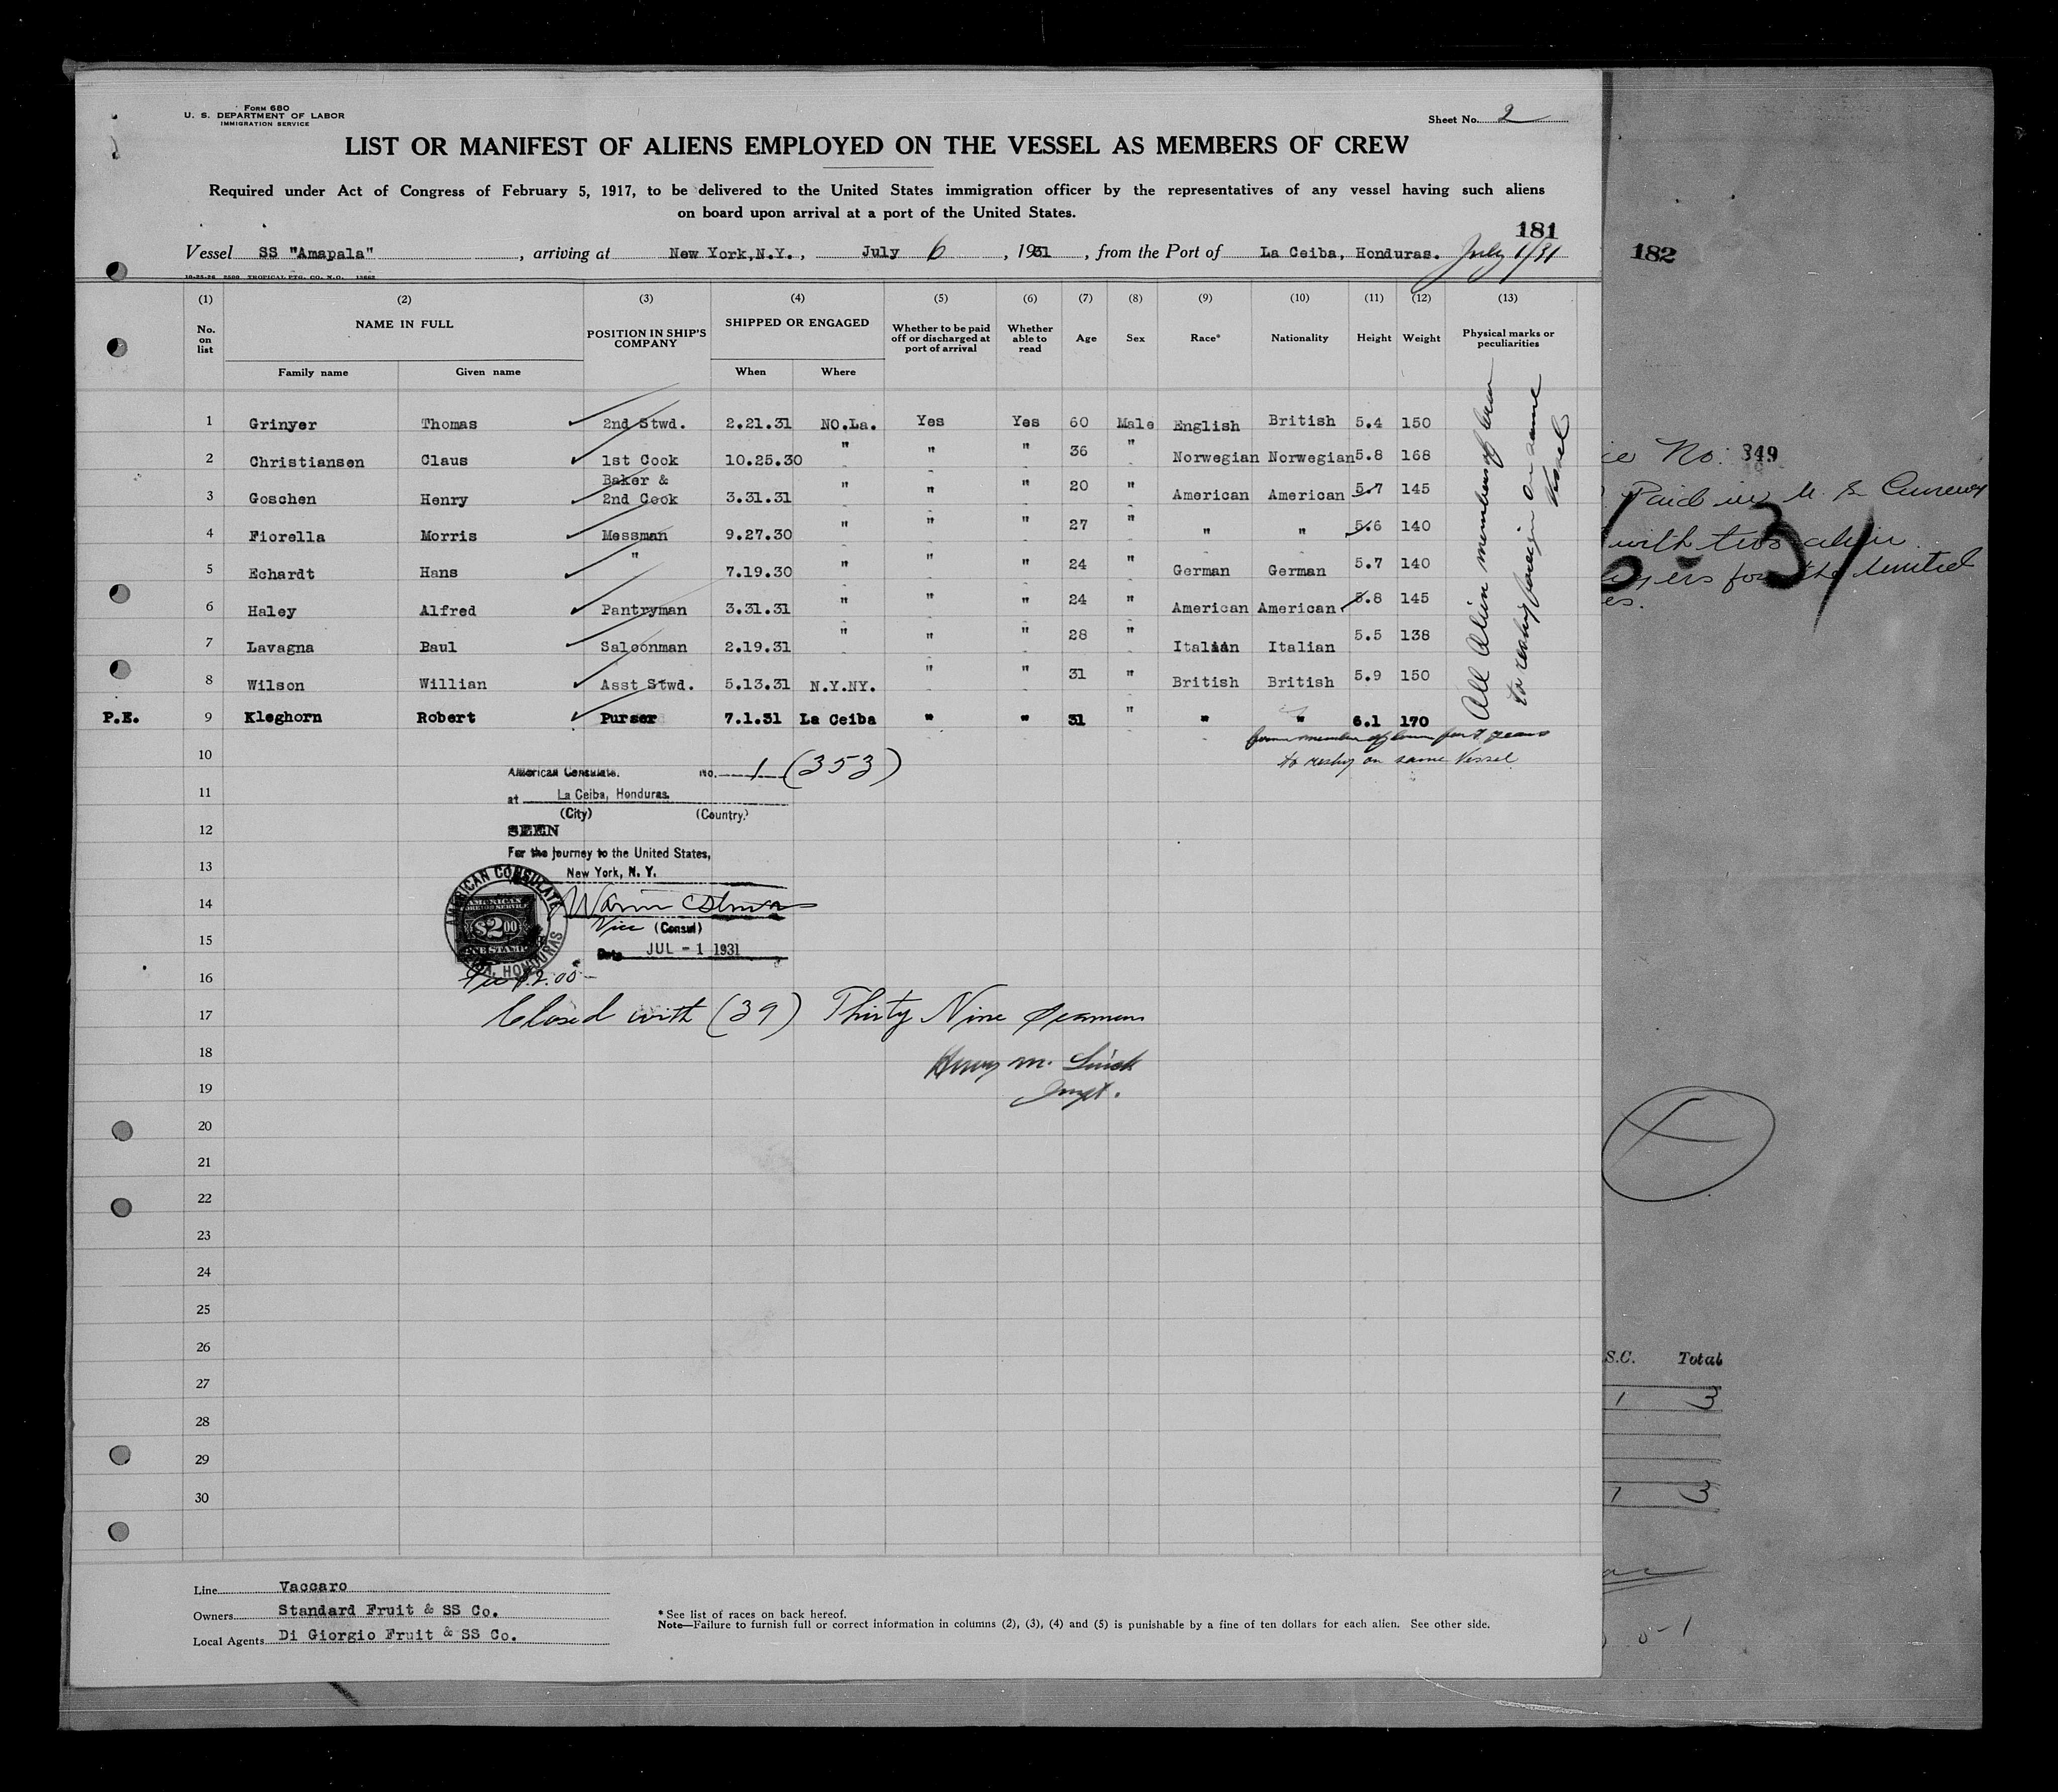 Form 680
U. S. DEPARTMENT OF LABOR
IMMIGRATION SERVICE
Sheet No. 2
LIST OR MANIFEST OF ALIENS EMPLOYED ON THE VESSEL AS MEMBERS OF CREW
Required under Act of Congress of February 5, 1917, to be delivered to the United States immigration officer by the representatives of any vessel having such aliens
on board upon arrival at a port of the United States.
181
182
Vessel SS "Amapala", arriving at New York,N.Y., July 6, 1931, from the Port of La Ceiba, Honduras. July 1/31
10-25-28 2500 TROPICAL PTG. CO. N.O. 12662
(1) (2) (3) (4) (5) (6) (7) (8) (9) (10) (11) (12) (13)
No. on list NAME IN FULL POSITION IN SHIP'S COMPANY SHIPPED OR ENGAGED Whether to be paid off or discharged at port of arrival Whether able to read Age Sex Race* Nationality Height Weight Physical marks or peculiarities
Family name Given name When Where
1 Grinyer Thomas 2nd Stwd. 2.21.31 NO.La. Yes Yes 60 Male English British 5.4 150
2 Christiansen Claus 1st Cook 10.25.30 " " " 36 " Norwegian Norwegian 5.8 168
3 Goschen Henry Baker & 2nd Cook 3.31.31 " " " 20 " American American 5.7 145
4 Fiorella Morris Messman 9.27.30 " " " 27 " " " 5.6 140
5 Echardt Hans " 7.19.30 " " " 24 " German German 5.7 140
6 Haley Alfred Pantryman 3.31.31 " " " 24 " American American 5.8 145
7 Lavagna Baul Saloonman 2.19.31 " " " 28 " Italian Italian 5.5 138
8 Wilson Willian Asst Stwd. 5.13.31 N.Y.NY. " " 31 " British British 5.9 150
P.E. 9 Kleghorn Robert Purser 7.1.31 La Ceiba " " 31 " " " 6.1 170
All Alien members of crew
to reship foreign on same
Vessel
member of crew for years
to reship on same Vessel
10
American Consulate. No. 1 (353)
11
at La Ceiba, Honduras.
(City) (Country)
12
SEEN
For the journey to the United States,
13
New York, N. Y.
14
15
Vice (Consul)
Date JUL - 1 1931
AMERICAN CONSULATE
AMERICAN
FOREIGN SERVICE
$2.00
FEE STAMP
HONDURAS
16
Fee $2.00
17 Closed with (39) Thirty Nine Seamen
18 Henry M.
19 Inspt.
20
21
22
23
24
25
26
27
28
29
30
Line Vaccaro
Owners Standard Fruit & SS Co.
Local Agents Di Giorgio Fruit & SS Co.
* See list of races on back hereof.
Note—Failure to furnish full or correct information in columns (2), (3), (4) and (5) is punishable by a fine of ten dollars for each alien. See other side.
No. 349
Paid in U. S. Currency
with two alien
for the United
es.
S.C. Total
1 3
1 3